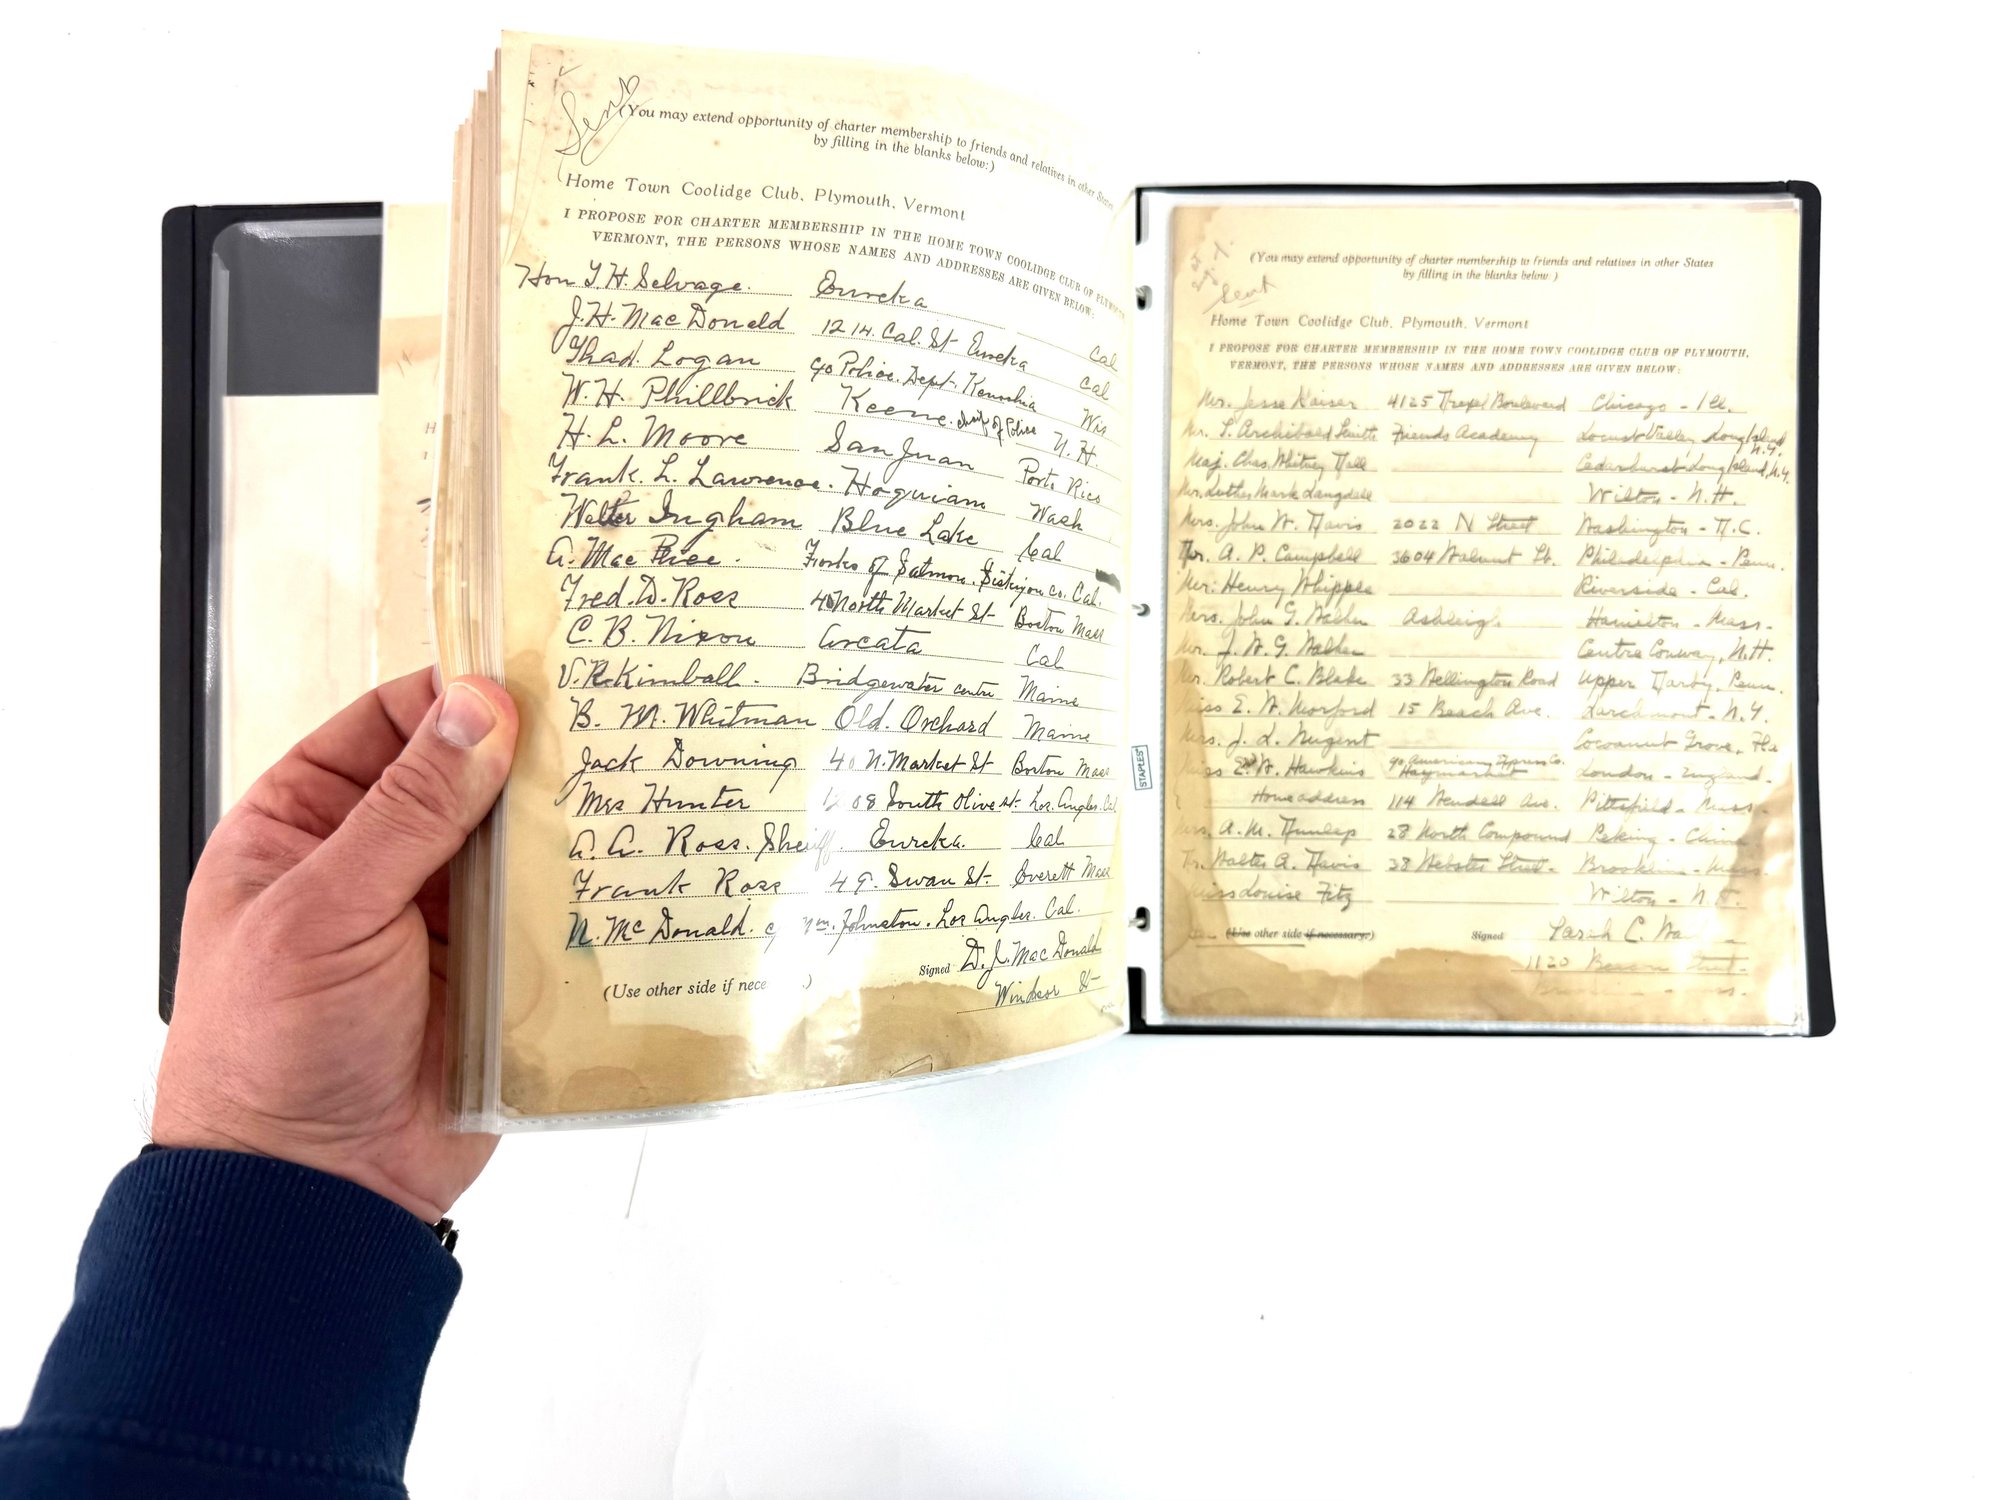 Sent
(You may extend opportunity of charter membership to friends and relatives in other States
by filling in the blanks below:)
Home Town Coolidge Club, Plymouth, Vermont
I PROPOSE FOR CHARTER MEMBERSHIP IN THE HOME TOWN COOLIDGE CLUB OF PLYMOUTH
VERMONT, THE PERSONS WHOSE NAMES AND ADDRESSES ARE GIVEN BELOW:
Hon T. H. Selvage. Eureka Cal
J. H. MacDonald 1214. Cal. St Eureka Cal
Thad. Logan c/o Police. Dept. Kenoshia Wis
W. H. Phillbrick Keene. Chief of Police N. H.
H. L. Moore San Juan Porto Rico
Frank. L. Lawrence. Hoquiam Wash
Walter Ingham Blue Lake Cal
A. Mac Phee. Forks of Salmon. Siskiyou Co. Cal.
Fred. D. Ross 40 North Market St Boston Mass
C. B. Nixon Arcata Cal
V. R. Kimball. Bridgewater centre Maine
B. M. Whitman Old. Orchard Maine
Jack Downing 40 N. Market St Boston Mass
Mrs Hunter 1208 South Olive st. Los Angles. Cal
A. A. Ross. Sheriff. Eureka. Cal
Frank Ross 49. Swan St. Everett Mass
N. McDonald. c/o Wm. Johnston. Los Angles. Cal.
(Use other side if nece .)
Signed D. J. MacDonald
Windsor St
STAPLES
Sent
(You may extend opportunity of charter membership to friends and relatives in other States
by filling in the blanks below:)
Home Town Coolidge Club, Plymouth, Vermont
I PROPOSE FOR CHARTER MEMBERSHIP IN THE HOME TOWN COOLIDGE CLUB OF PLYMOUTH,
VERMONT, THE PERSONS WHOSE NAMES AND ADDRESSES ARE GIVEN BELOW:
Mr. Jesse Kaiser 4125 Drexel Boulevard Chicago - Ill.
Mr. S. Archibald Smith Friends Academy Locust Valley, Long Island N.Y.
Maj. Chas. Whitney Hall Cedarhurst Long Island, N.Y.
Mr. Luther Mark Langdell Wilton - N.H.
Mrs. John W. Davis 2022 N Street Washington - D.C.
Dr. A. P. Campbell 3604 Walnut St. Philadelphia - Penn.
Mr. Henry Whipple Riverside - Cal.
Mrs. John G. Walker Ashleigh Hamilton - Mass.
Mr. J. W. G. Walker Centre Conway, N.H.
Mr. Robert C. Blake 33 Wellington Road Upper Darby, Penn.
Miss E. W. Morford 15 Beach Ave. Larchmont - N.Y.
Mrs. J. L. Nugent Cocoanut Grove, Fla
Miss E. W. Hawkins c/o American Express Co. Haymarket London - England.
Home address 114 Wendell Ave. Pittsfield - Mass.
Mrs. A. M. Dunlap 28 North Compound Peking - China
Dr. Walter A. Davis 38 Webster Street - Brookline - Mass.
Miss Louise Fitz Wilton - N.H.
(Use other side if necessary.)
Signed Sarah C. Wa
1120 Street.